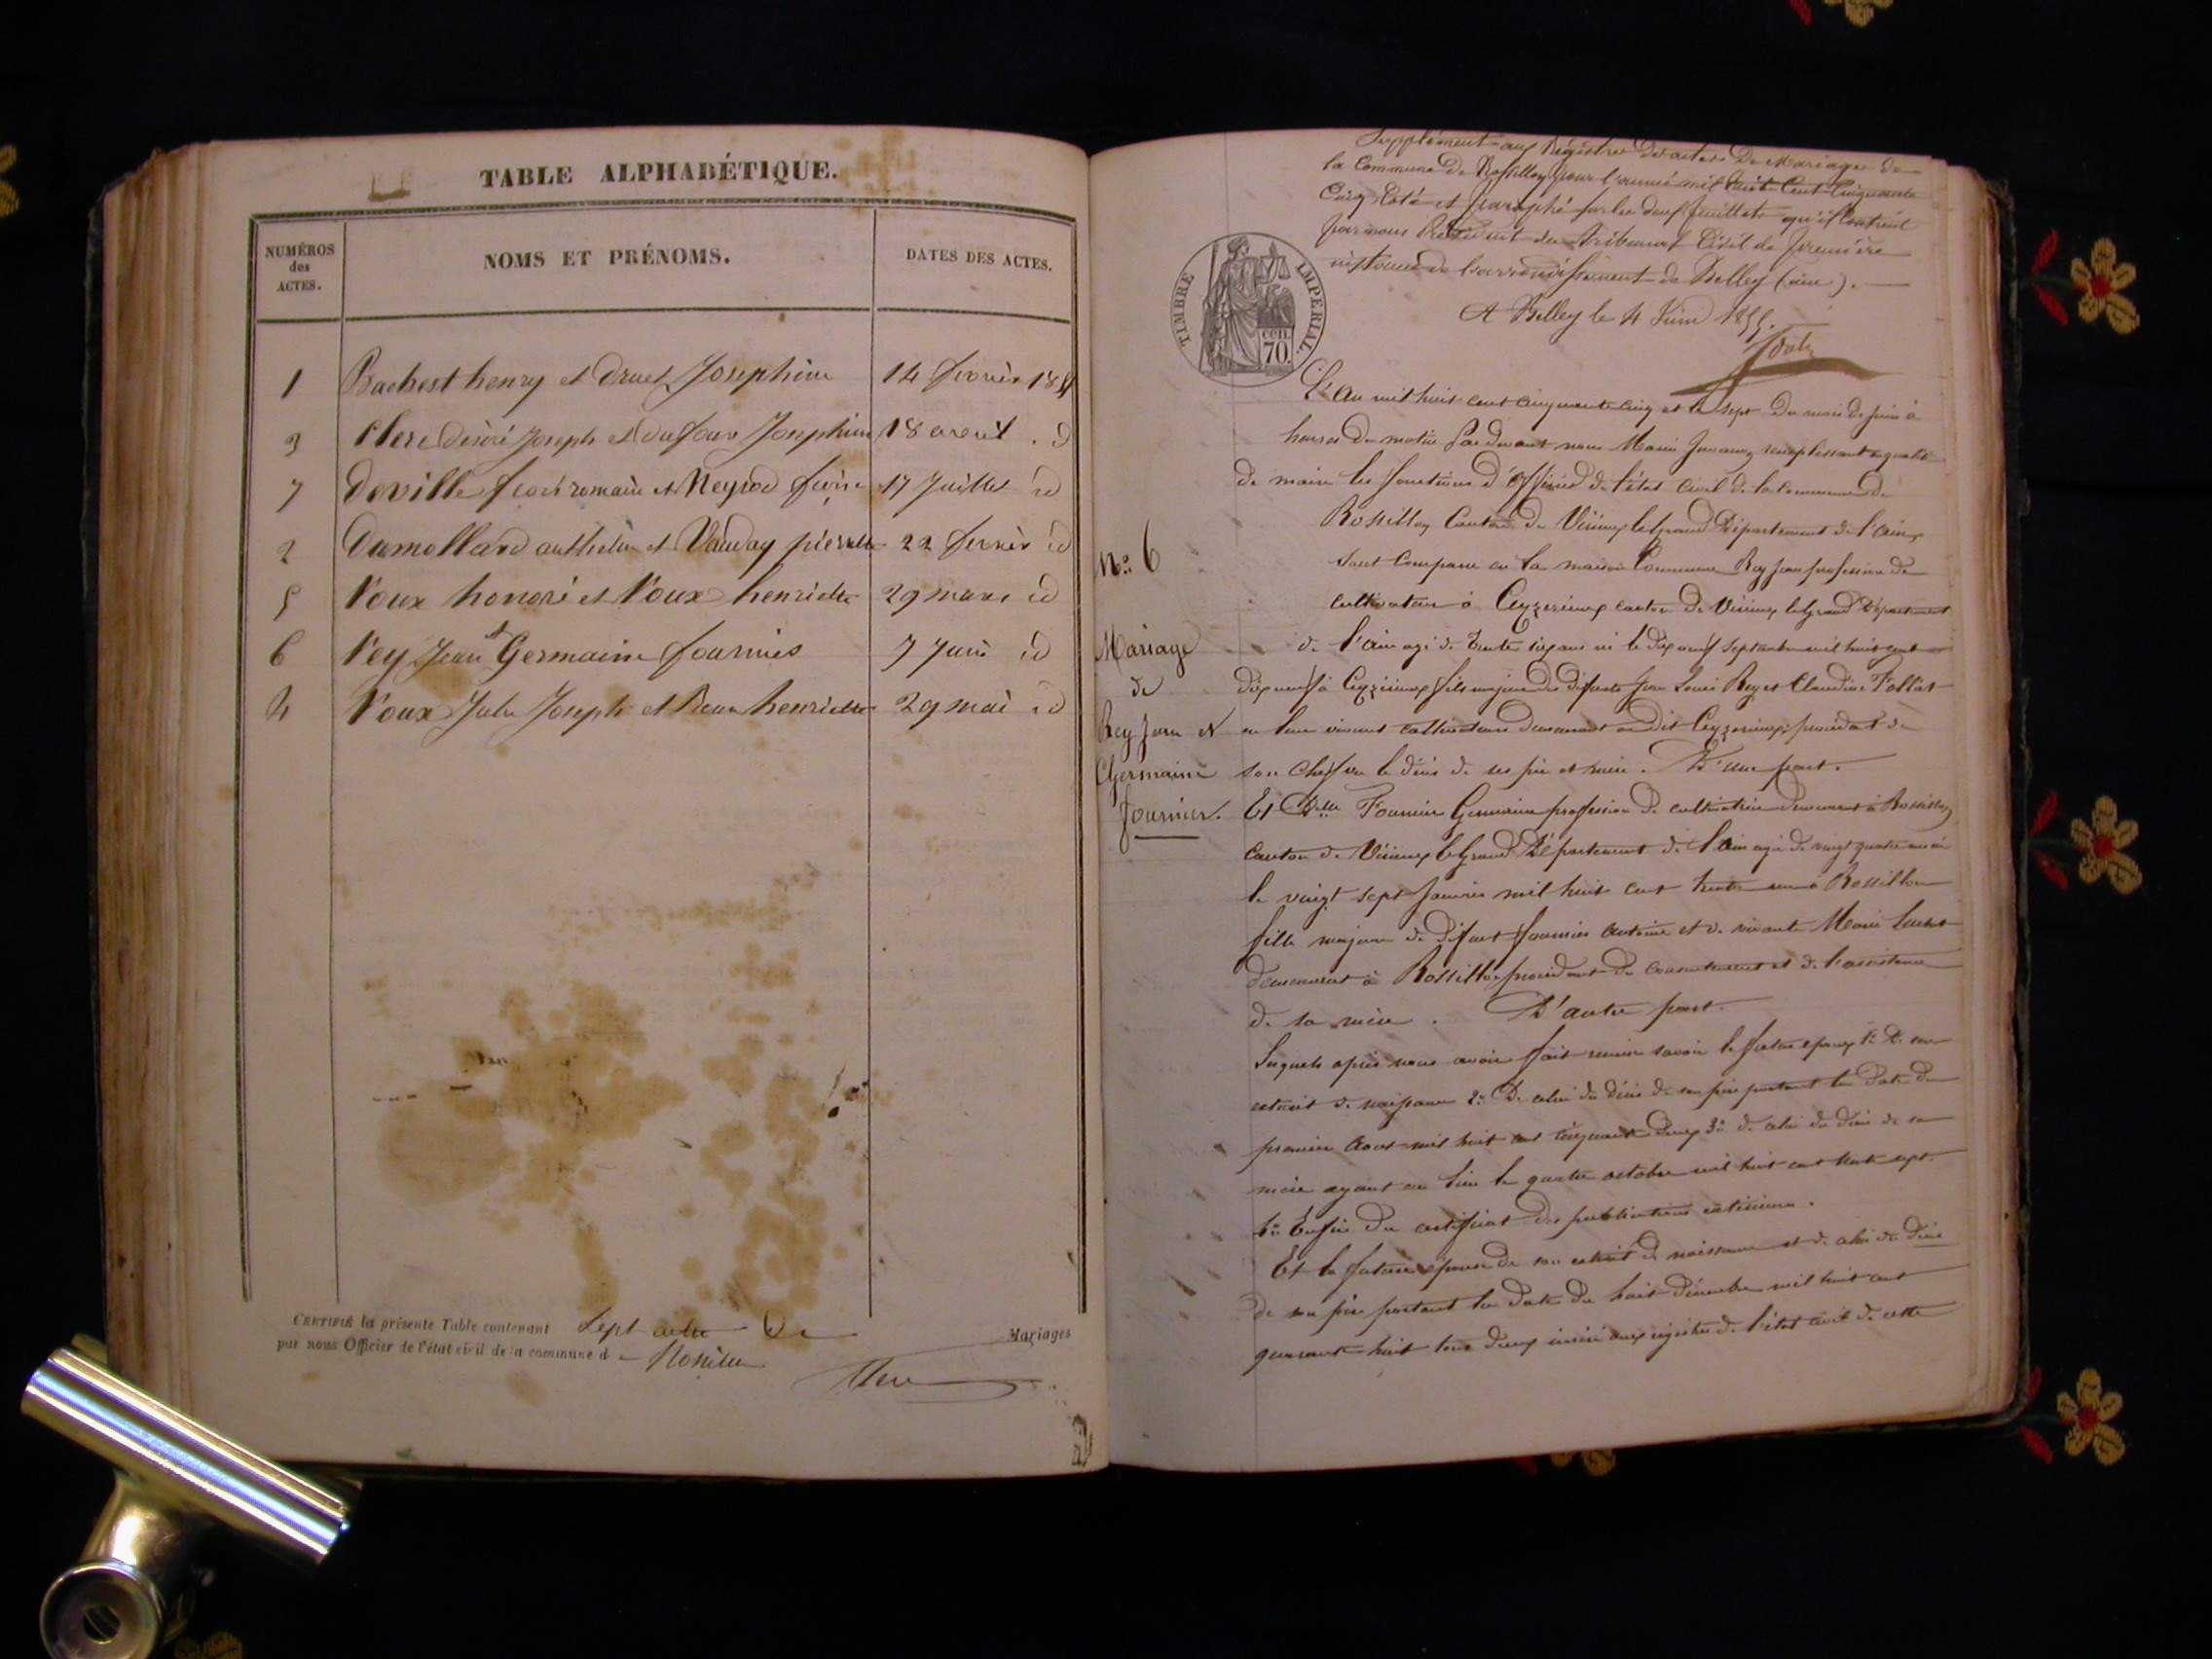 TABLE ALPHABÉTIQUE.
NUMÉROS des ACTES.
NOMS ET PRÉNOMS.
DATES DES ACTES.
1 Bachest henry et druet Josephine 14 fevrier 185
3 Clerc désiré Joseph et dufour Josephine 18 avril id
7 deville romain et Neyrod 17 Juillet id
2 Dumollard anthelme et Vauday pierrette 22 fevrier id
5 Roux honoré et Roux henriette 29 mars id
6 Rey Jean et Germaine fournier 7 Juin id
4 Roux Jule Joseph et henriette 29 mai id
CERTIFIÉ la présente Table contenant Sept actes De Mariages
par nous Officier de l'état civil de la commune d Rossillon
Supplément aux Régistres des actes De Mariages de
la Commune De Rossillon pour l'année mil huit Cent Cinquante
Cinq Coté et paraphé sur les deux feuillets qu'il Contient
par nous Président du Tribunal Civil de première
instance de l'arrondissement de Belley (ain).
A Belley le 4 Juin 1855.
TIMBRE IMPERIAL.
CEN. 70.
L'An mil huit cent cinquante cinq et le sept du mois de Juin à
heures du matin Pardevant nous Maire remplissant
de maire les fonctions d'Officier de l'état Civil de la commune de
Rossillon Canton De Virieux le grand Département de l'ain,
sont Comparu en la maison Commune Rey Jean profession de
cultivateur à Ceyzerieux canton de Virieux le Grand Département
de l'ain agé de trente six ans né le dix neuf Septembre mil huit cent
dix neuf à Ceyzerieux fils majeur des défunts Jean Louis Rey et Claudine Follet
en leur vivant cultivateurs demeurant au dit Ceyzerieux, procédant de
son chef vu le décès de ses père et mère. D'une part.
N° 6
Mariage
de
Rey Jean et
Germaine
fournier.
Et Delle Fournier Germaine profession De cultivatrice demeurant à Rossillon
Canton de Virieux le Grand Département de l'Ain agée de vingt quatre ans née
le vingt sept Janvier mil huit cent trente un à Rossillon
fille majeure de défunt fournier Antoine et de vivante Marie
demeurant à Rossillon procédant du consentement et de l'assistance
de sa mère. D'autre part.
Lesquels après nous avoir fait remise savoir le futur époux 1° De son
extrait de naissance 2° De celui du décès de son père portant la date du
premier Aout mil huit cent cinquante deux 3° de celui du décès de sa
mère ayant eu lieu le quatre octobre mil huit cent trente sept.
4° Enfin du certificat des publications
Et la future épouse de son extrait de naissance et de celui du décès
de son père portant la date du huit Décembre mil huit cent
quarante huit tous deux inséré aux registres de l'état civil de cette